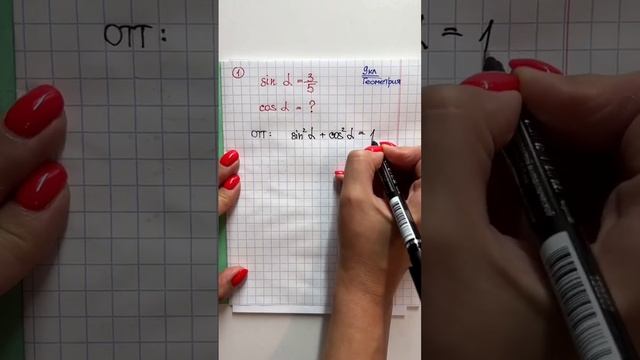 ① sin α = 3/5
9 кл
Геометрия
cos α = ?
ОТТ: sin² α + cos² α = 1